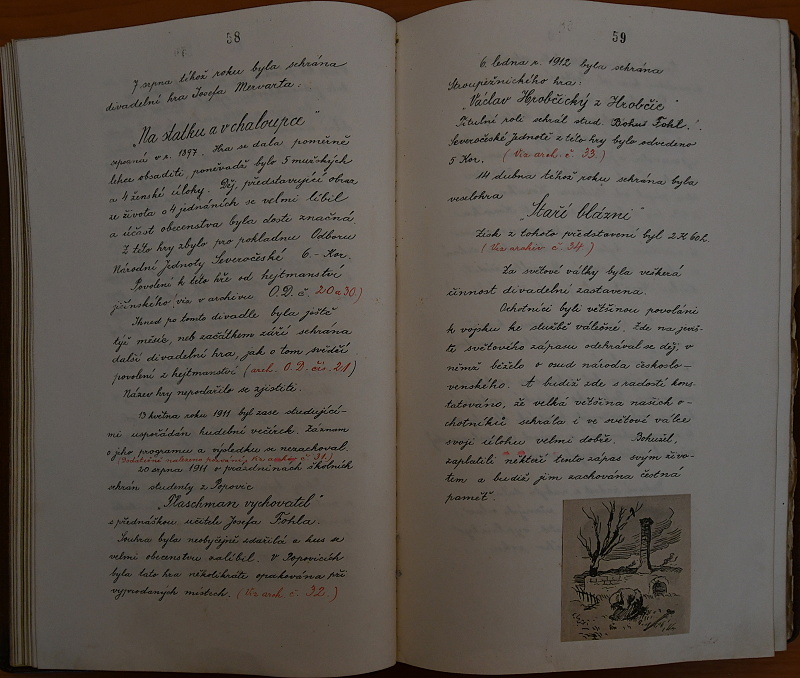 58
7 srpna téhož roku byla sehrána
divadelní hra Josefa Mervarta:
"Na statku a v chaloupce"
sepsaná v r. 1897. Hra se dala poměrně
lehce obsaditi, poněvadž bylo 5 mužských
a 4 ženské úlohy. Děj, představující obraz
ze života o 4 jednáních se velmi líbil
a účast obecenstva byla dosti značná.
Z této hry zbylo pro pokladnu Odboru
Národní Jednoty Severočeské 6.- Kor.
Povolení k této hře od hejtmanství
jičínského viz v archivu O.D. č. 20 a 30.)
Ihned po tomto divadle byla ještě
týž měsíc, neb začátkem září sehrána
další divadelní hra, jak o tom svědčí
povolení z hejtmanství (arch. O.D. čís. 21)
Název hry nepodařilo se zjistiti.
13 května roku 1911 byl zase studující-
mi uspořádán hudební večírek. Záznam
o jho programu a výsledku se nezachoval.
(Dodatečně nalezena pozvánky. Viz archiv č. 31.)
20 srpna 1911 o prázdninách školních
sehráli studenti z Popovic
"Plaschman vychovatel"
s přednáškou učitele Josefa Fohla.
Souhra byla neobyčejně zdařilá a kus se
velmi obecenstvu zalíbil. V Popovicích
byla tato hra několikráte opakována při
vyprodaných místech. (Viz arch. č. 32.)
59
6. ledna r. 1912 byla sehrána
Stroupežnického hra:
"Václav Hrobčický z Hrobčic"
Titulní roli sehrál stud. Bohuš Fohl.
Severočeské Jednotě z této hry bylo odvedeno
5 Kor. (Viz arch. č. 33.)
14 dubna téhož roku sehrána byla
veselohra
"Staří blázni"
Zisk z tohoto představení byl 2 K 60 h.
(Viz archiv č. 34.)
Za světové války byla veškerá
činnost divadelní zastavena.
Ochotníci byli většinou povoláni
k vojsku ke službě válečné. Zde na jeviš-
tě světového zápasu odehrával se děj, v
němž běželo o osud národa českoslo-
venského. A budiž zde s radostí kons-
tatováno, že velká většina našich o-
chotníků sehrála i ve světové válce
svoji úlohu velmi dobře. Bohužel,
zaplatili někteří tento zápas svým živo-
tem a budiž jim zachována čestná
paměť.